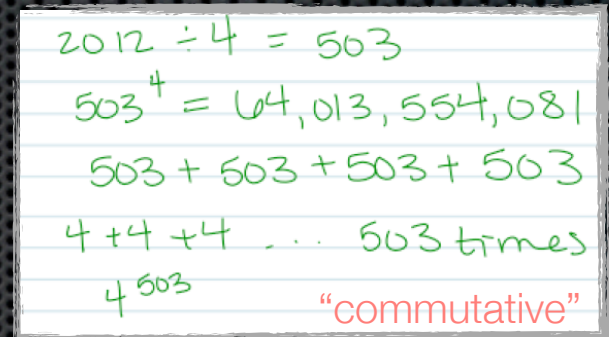 2012 ÷ 4 = 503
503⁴ = 64,013,554,081
503 + 503 + 503 + 503
4 + 4 + 4 ... 503 times
4⁵⁰³
“commutative”